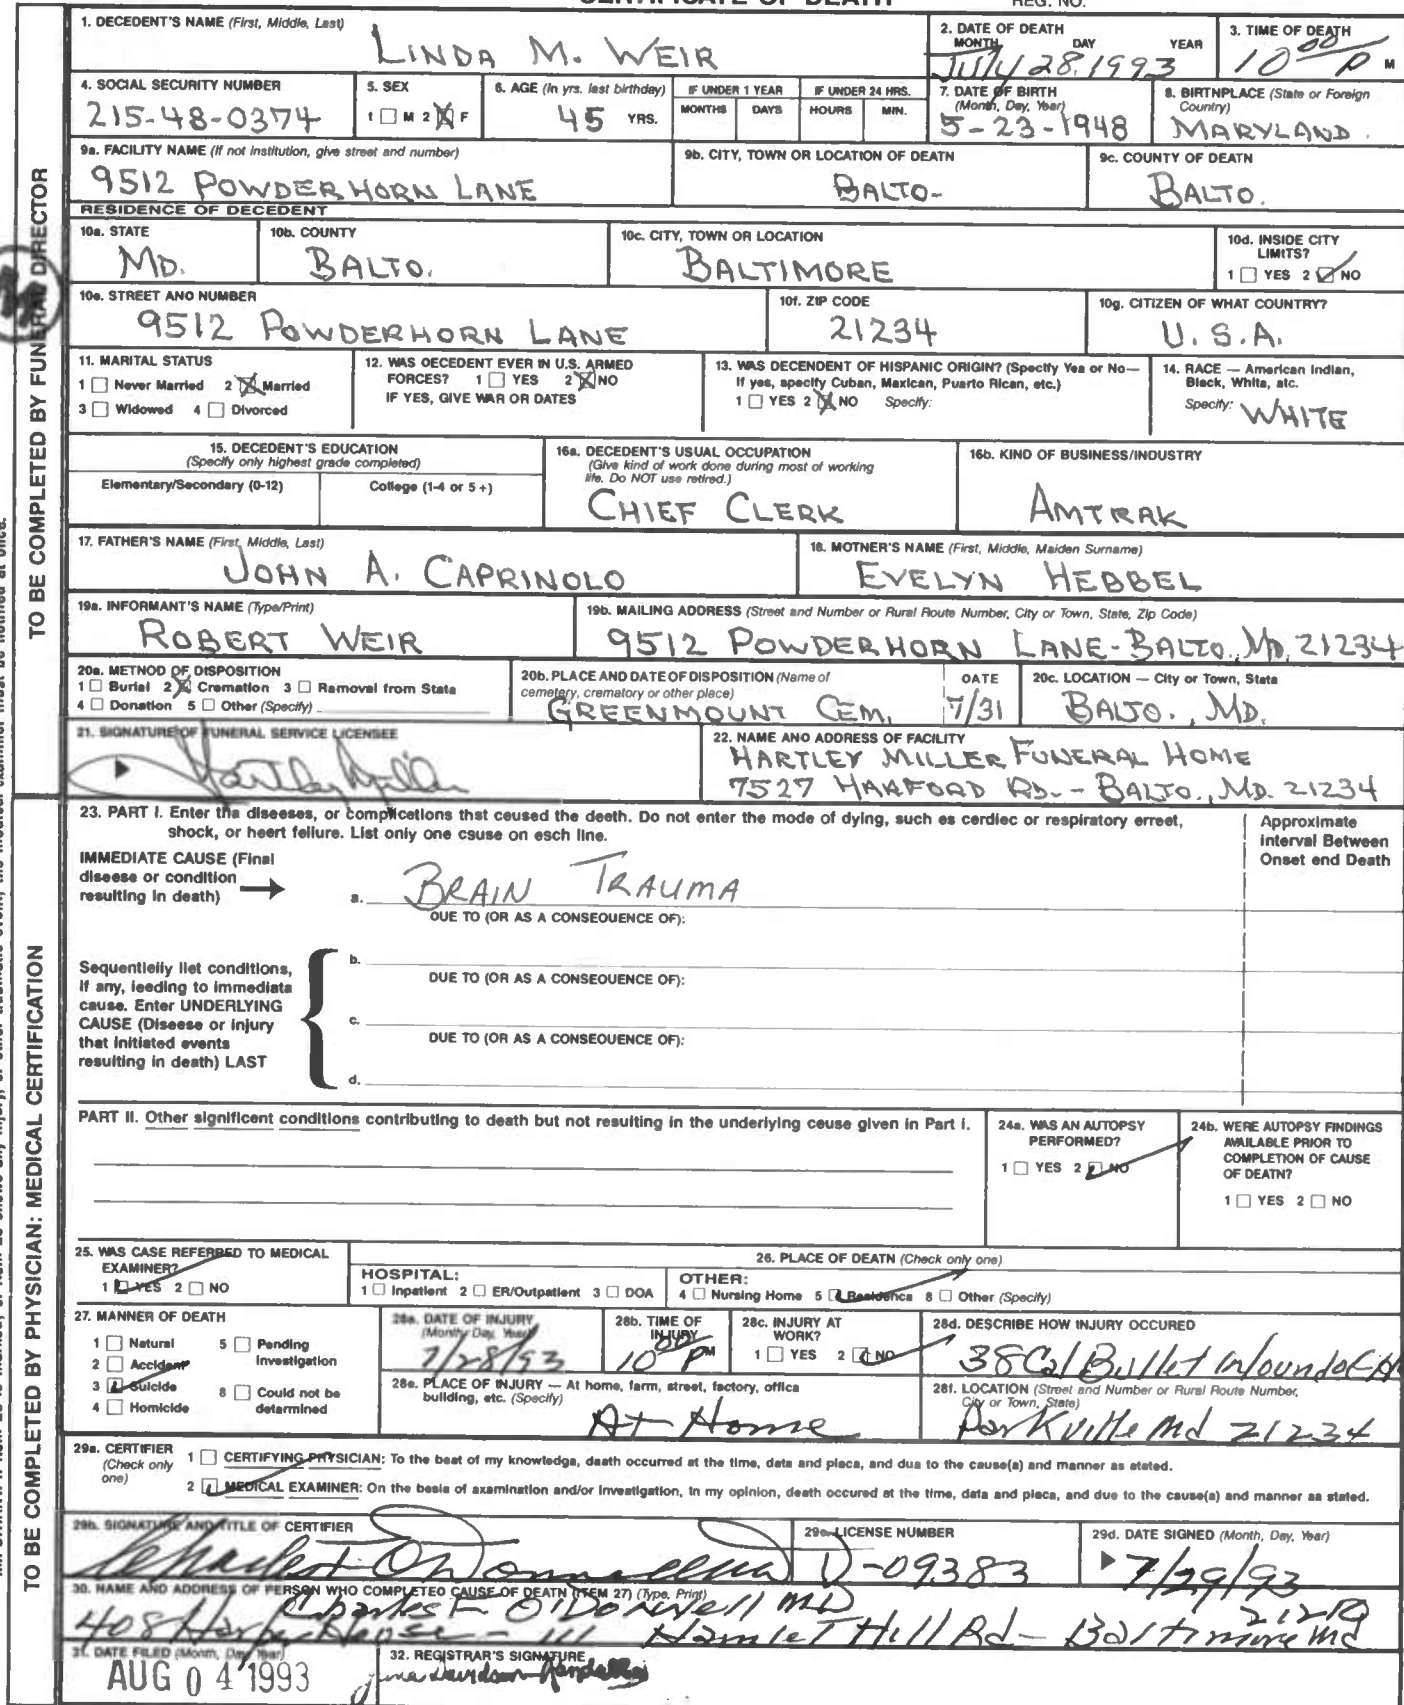 CERTIFICATE OF DEATH REG. NO.
1. DECEDENT'S NAME (First, Middle, Last)
LINDA M. WEIR
2. DATE OF DEATH
MONTH DAY YEAR
July 28, 1993
3. TIME OF DEATH
10 00 P M
4. SOCIAL SECURITY NUMBER
215-48-0374
5. SEX
1 M 2 F
6. AGE (In yrs. last birthday)
45 YRS.
IF UNDER 1 YEAR
MONTHS DAYS
IF UNDER 24 HRS.
HOURS MIN.
7. DATE OF BIRTH
(Month, Day, Year)
5-23-1948
8. BIRTNPLACE (State or Foreign
Country)
MARYLAND.
9a. FACILITY NAME (If not institution, give street and number)
9512 POWDERHORN LANE
9b. CITY, TOWN OR LOCATION OF DEATH
BALTO-
9c. COUNTY OF DEATH
BALTO.
RESIDENCE OF DECEDENT
10a. STATE
MD.
10b. COUNTY
BALTO.
10c. CITY, TOWN OR LOCATION
BALTIMORE
10d. INSIDE CITY
LIMITS?
1 YES 2 NO
10e. STREET ANO NUMBER
9512 POWDERHORN LANE
10f. ZIP CODE
21234
10g. CITIZEN OF WHAT COUNTRY?
U.S.A.
11. MARITAL STATUS
1 Never Married 2 Married
3 Widowed 4 Divorced
12. WAS OECEDENT EVER IN U.S. ARMED
FORCES? 1 YES 2 NO
IF YES, GIVE WAR OR DATES
13. WAS DECENDENT OF HISPANIC ORIGIN? (Specify Yes or No—
If yes, specify Cuban, Maxican, Puarto Rican, etc.)
1 YES 2 NO Specify:
14. RACE — American Indian,
Bleck, Whita, atc.
Specify: WHITE
15. DECEDENT'S EDUCATION
(Specify only highest grade completed)
Elementary/Secondary (0-12) College (1-4 or 5+)
16a. DECEDENT'S USUAL OCCUPATION
(Give kind of work done during most of working
life. Do NOT use retired.)
CHIEF CLERK
16b. KIND OF BUSINESS/INDUSTRY
AMTRAK
17. FATHER'S NAME (First, Middle, Last)
JOHN A. CAPRINOLO
18. MOTNER'S NAME (First, Middle, Maiden Surname)
EVELYN HEBBEL
19a. INFORMANT'S NAME (Type/Print)
ROBERT WEIR
19b. MAILING ADDRESS (Street and Number or Rural Route Number, City or Town, State, Zip Code)
9512 POWDERHORN LANE-BALTO., MD. 21234
20a. METNOD OF DISPOSITION
1 Burial 2 Cremation 3 Ramoval from Stata
4 Donation 5 Other (Specify)
20b. PLACE AND DATE OF DISPOSITION (Name of
cemetery, crematory or other place)
GREENMOUNT CEM.
OATE
7/31
20c. LOCATION — City or Town, Stata
BALTO., MD.
21. SIGNATURE OF FUNERAL SERVICE LICENSEE
Hartley Miller
22. NAME ANO ADDRESS OF FACILITY
HARTLEY MILLER FUNERAL HOME
7527 HARFORD RD. - BALTO., MD. 21234
TO BE COMPLETED BY FUNERAL DIRECTOR
23. PART I. Enter tha diseeses, or complicetions thst ceused the deeth. Do not enter the mode of dying, such es cerdiec or respiratory erreet,
shock, or heert feilure. List only one csuse on esch line.
Approximate
Interval Between
Onset end Death
IMMEDIATE CAUSE (Final
diseese or condition
resulting in death)
a. BRAIN TRAUMA
DUE TO (OR AS A CONSEOUENCE OF):
Sequentielly llet conditions,
if any, leeding to immediata
cause. Enter UNDERLYING
CAUSE (Diseese or injury
that initiated events
resulting in death) LAST
b.
DUE TO (OR AS A CONSEOUENCE OF):
c.
DUE TO (OR AS A CONSEOUENCE OF):
d.
PART II. Other significent conditions contributing to death but not resulting in the underlying ceuse given in Part I.
24a. WAS AN AUTOPSY
PERFORMED?
1 YES 2 NO
24b. WERE AUTOPSY FINDINGS
AVAILABLE PRIOR TO
COMPLETION OF CAUSE
OF DEATN?
1 YES 2 NO
25. WAS CASE REFERRED TO MEDICAL
EXAMINER?
1 YES 2 NO
26. PLACE OF DEATH (Check only one)
HOSPITAL:
1 Inpatient 2 ER/Outpatient 3 DOA
OTHER:
4 Nursing Home 5 Residenca 8 Other (Specify)
27. MANNER OF DEATH
1 Natural 5 Pending
Investigation
2 Accident
3 Suicide 8 Could not be
determined
4 Homicide
28a. DATE OF INJURY
(Month, Day, Year)
7/28/93
28b. TIME OF
INJURY
10 00 PM
28c. INJURY AT
WORK?
1 YES 2 NO
28d. DESCRIBE HOW INJURY OCCURED
38 Cal Bullet Wound of
28e. PLACE OF INJURY — At home, farm, street, factory, offica
building, etc. (Specify)
At Home
28f. LOCATION (Street and Number or Rural Route Number,
City or Town, State)
Parkville Md 21234
29a. CERTIFIER
(Check only
one)
1 CERTIFYING PHYSICIAN: To the beat of my knowledga, daath occurred at the time, data and placa, and dua to the cause(a) and manner as stated.
2 MEDICAL EXAMINER: On the besis of axamination and/or Investigation, In my opinion, death occured at the time, data and placa, and due to the cause(a) and manner aa stated.
29b. SIGNATURE AND TITLE OF CERTIFIER
Charles F O'Donnell MD
29c. LICENSE NUMBER
D-09383
29d. DATE SIGNED (Month, Day, Year)
7/29/93
30. NAME AND ADDRESS OF PERSON WHO COMPLETEO CAUSE OF DEATN (ITEM 27) (Type, Print)
Charles F O'Donnell MD
408 Harper House - 111 Hamlet Hill Rd - Baltimore Md
31. DATE FILED (Month, Day, Year)
AUG 04 1993
32. REGISTRAR'S SIGNATURE
TO BE COMPLETED BY PHYSICIAN: MEDICAL CERTIFICATION